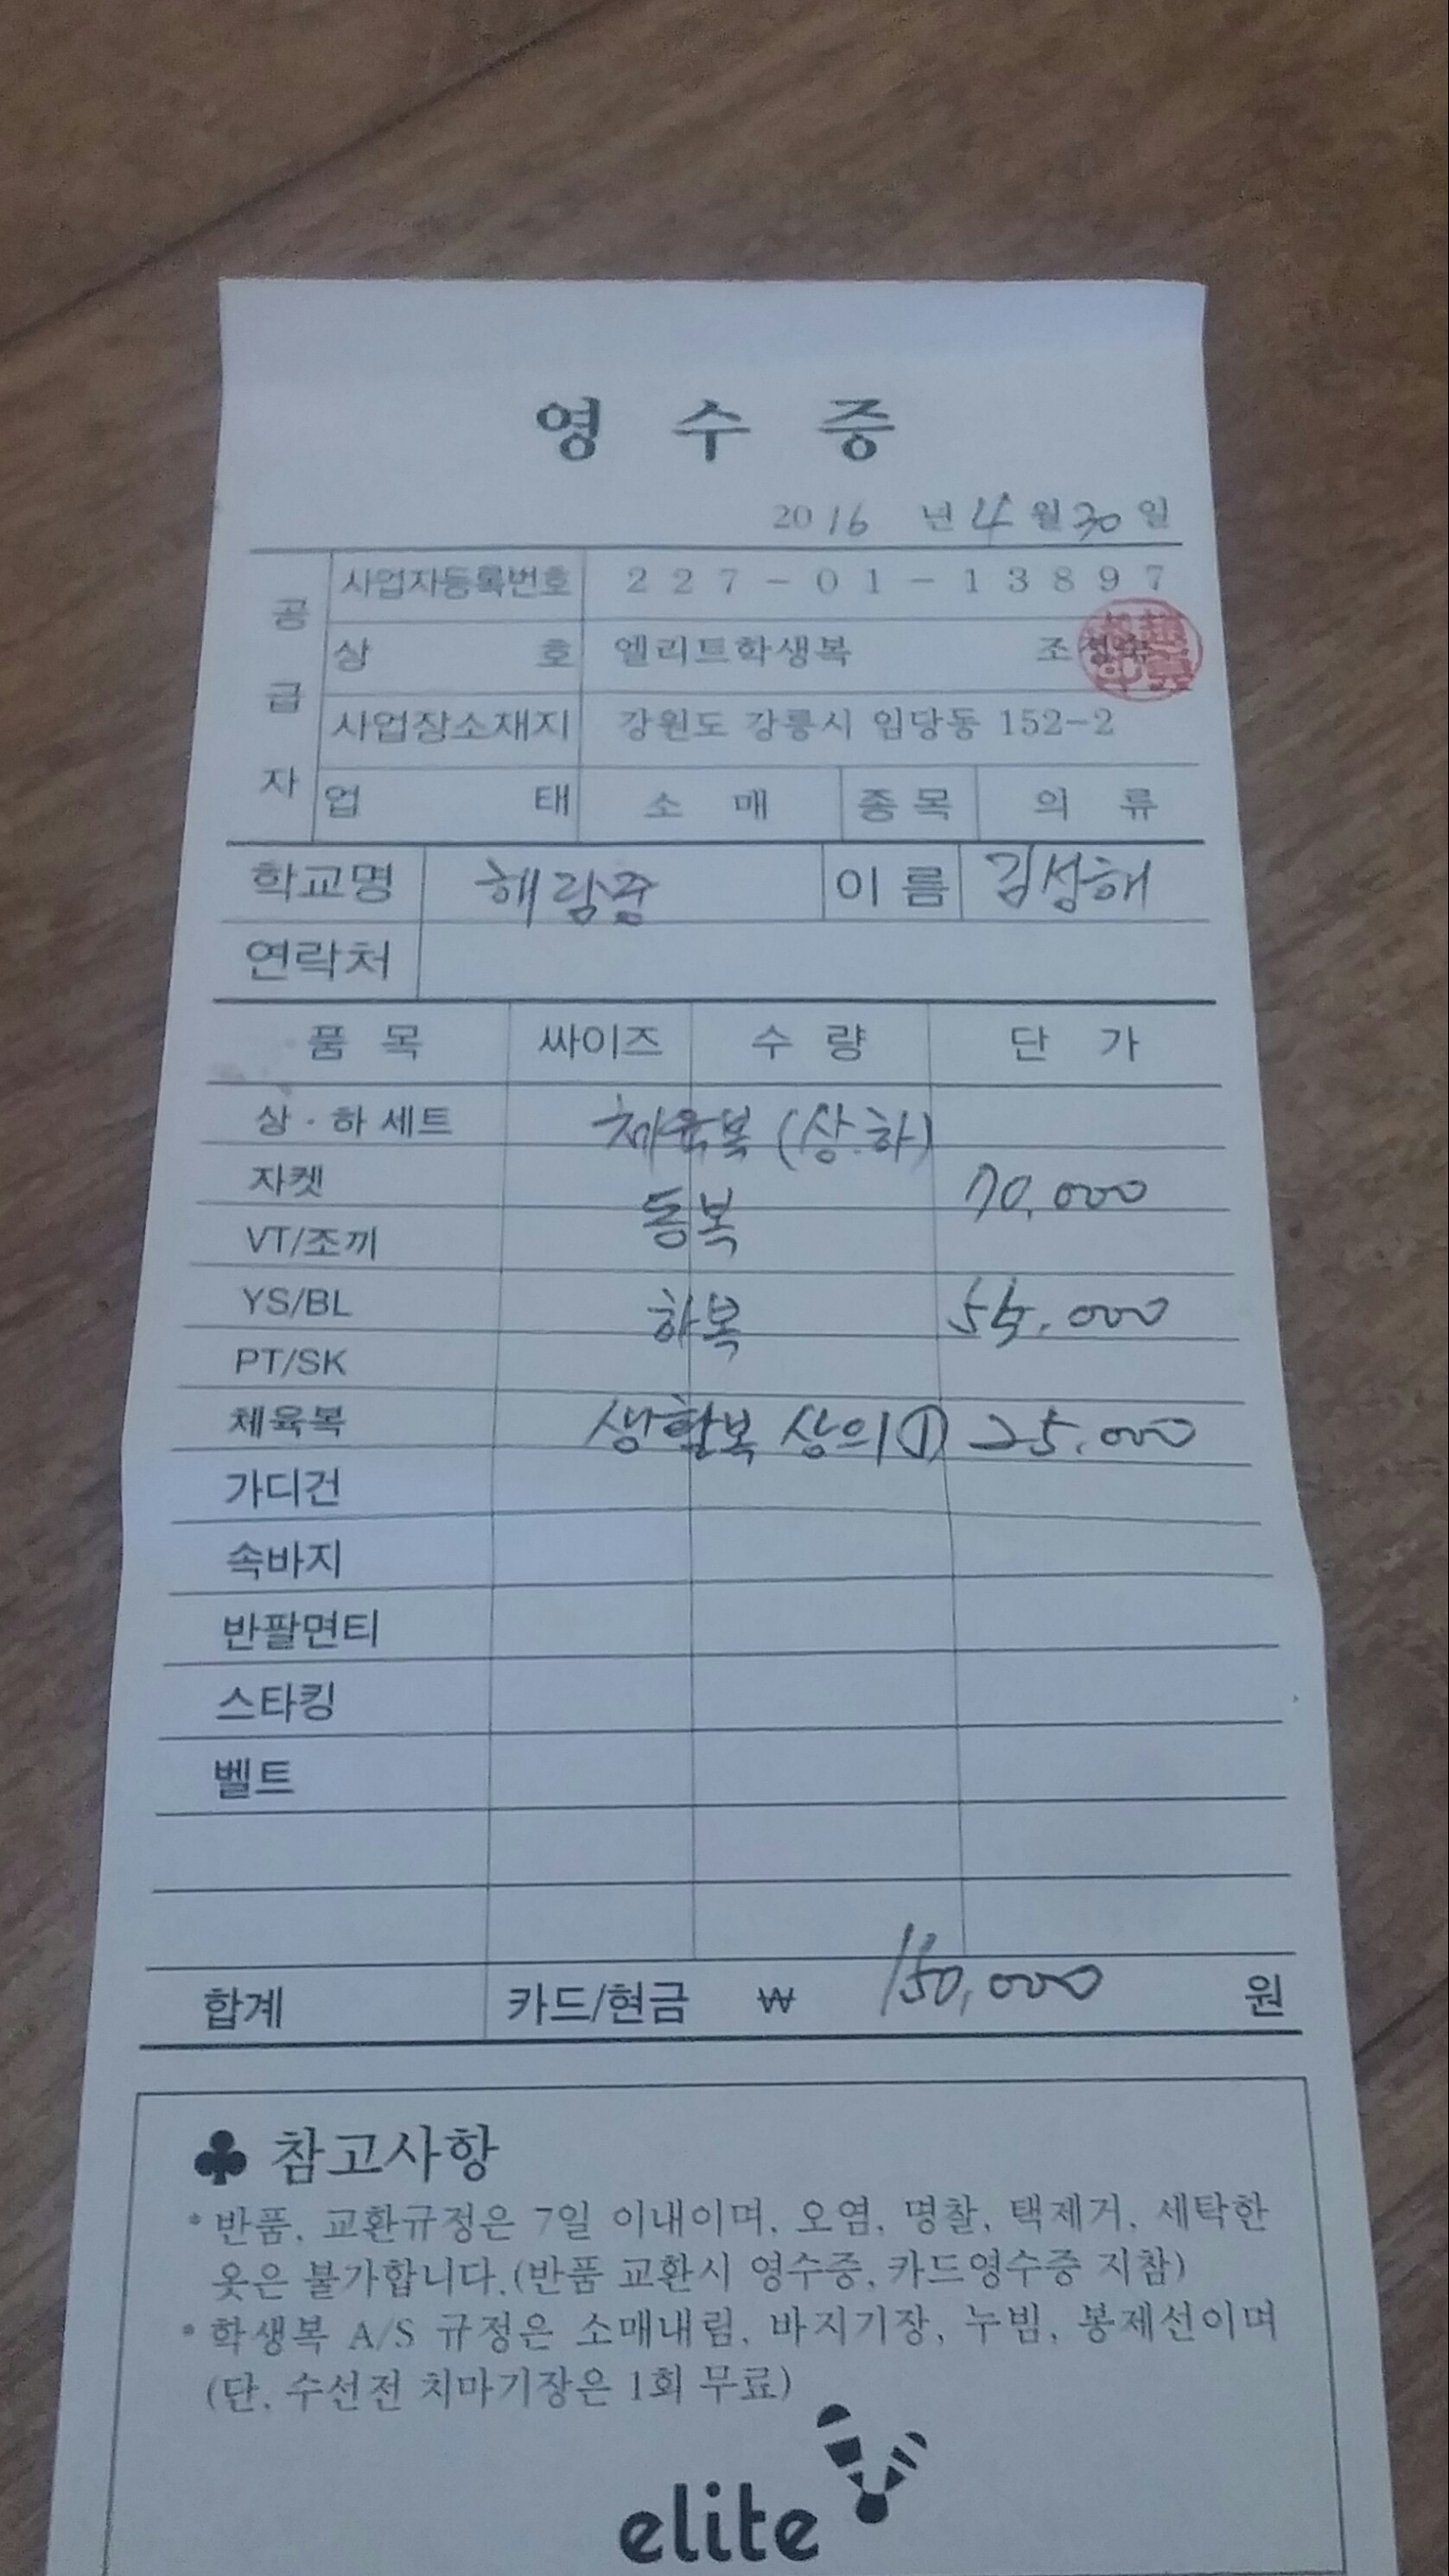 영 수 증
2016 년 4월 30일
공급자
사업자등록번호 227-01-13897
상 호 엘리트학생복 조성수
사업장소재지 강원도 강릉시 임당동 152-2
업 태 소 매 종목 의 류
학교명 해람중 이름 김성해
연락처
품 목 싸이즈 수 량 단 가
상·하 세트 체육복 (상.하)
자켓 70,000
동복
VT/조끼
YS/BL 하복 55,000
PT/SK
체육복 생활복 상의① 25,000
가디건
속바지
반팔면티
스타킹
벨트
합계 카드/현금 ₩ 150,000 원
♣ 참고사항
* 반품, 교환규정은 7일 이내이며, 오염, 명찰, 택제거, 세탁한
옷은 불가합니다.(반품 교환시 영수증, 카드영수증 지참)
* 학생복 A/S 규정은 소매내림, 바지기장, 누빔, 봉제선이며
(단, 수선전 치마기장은 1회 무료)
elite